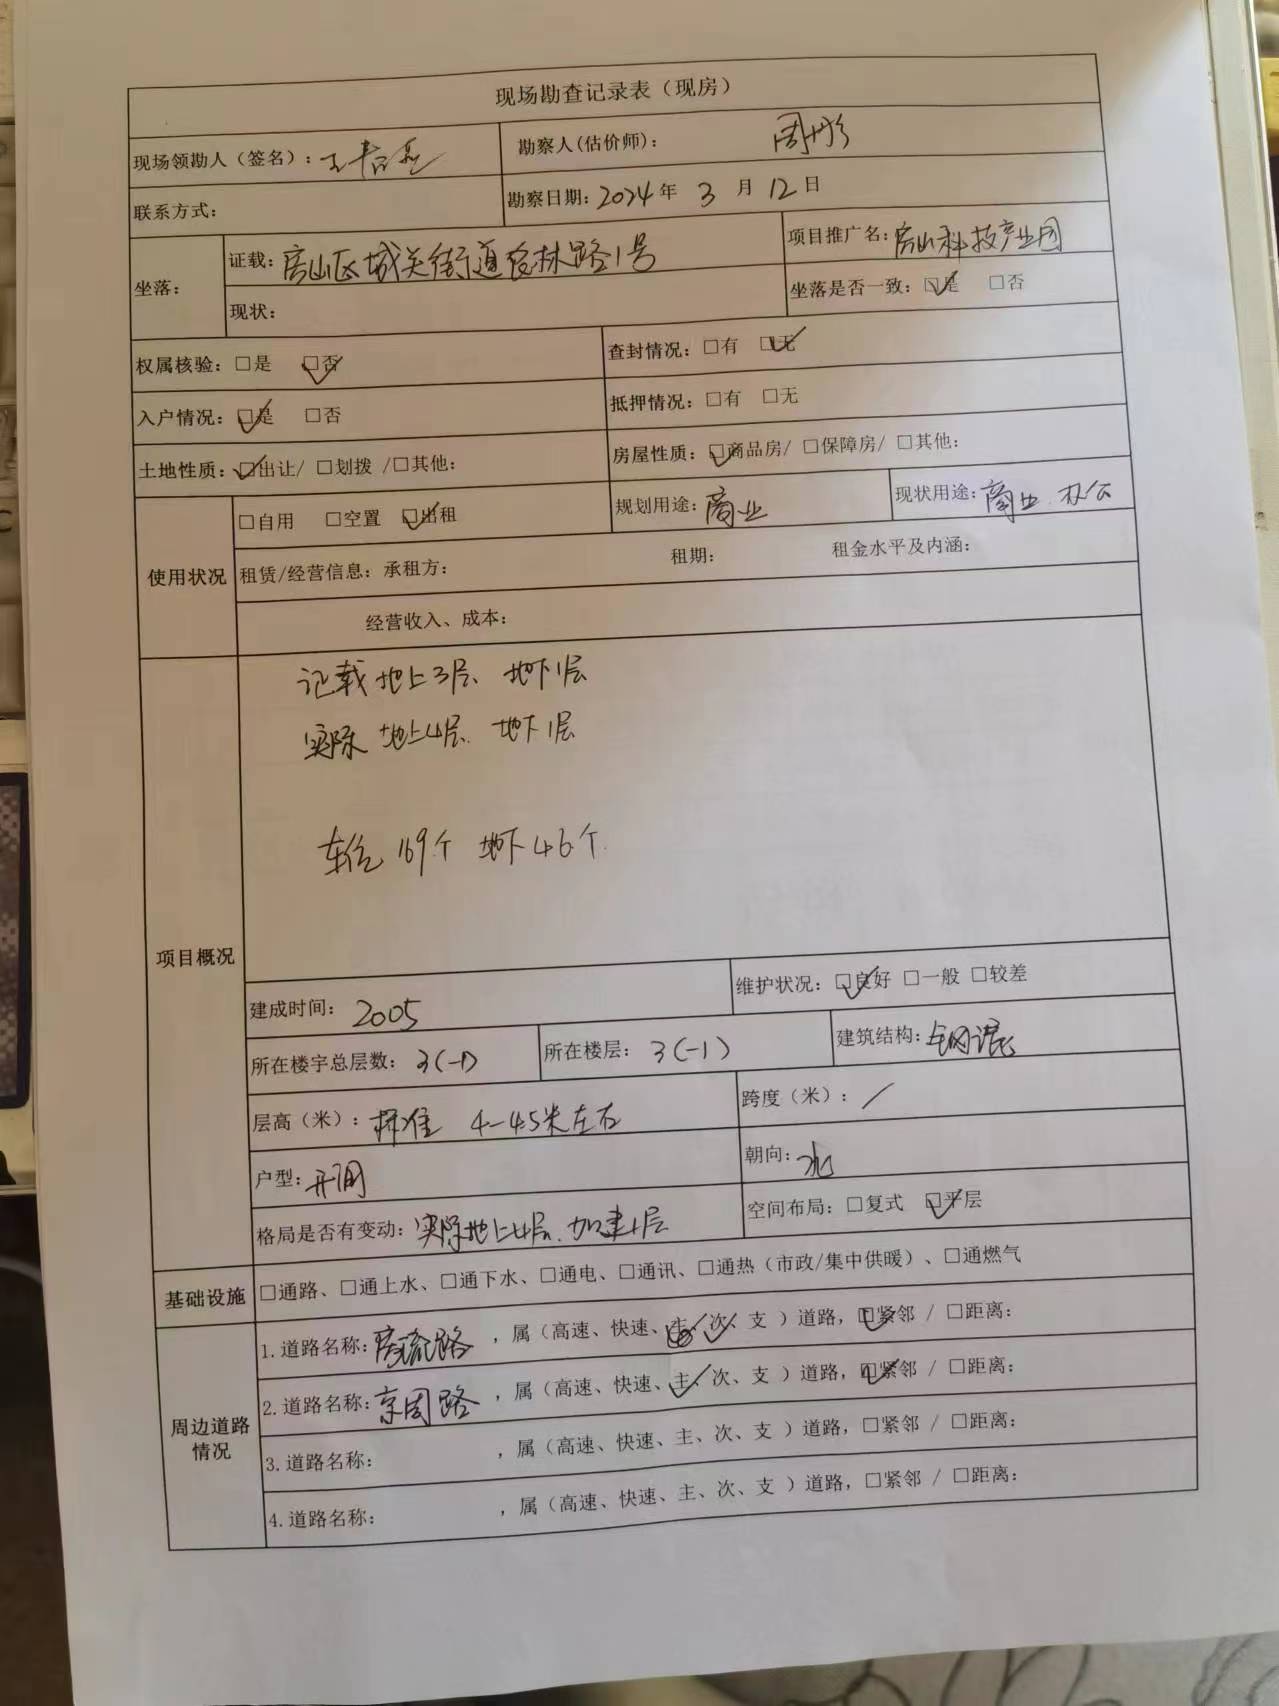 现场勘查记录表（现房）
现场领勘人（签名）： 勘察人(估价师)： 周彤
联系方式： 勘察日期：2024年 3 月 12 日
坐落： 证载：房山区城关街道农林路1号 项目推广名：房山科技产业园
现状： 坐落是否一致：☑是 □否
权属核验：□是 ☑否 查封情况：□有 ☑无
入户情况：☑是 □否 抵押情况：□有 □无
土地性质：☑出让/ □划拨 /□其他： 房屋性质：☑商品房/ □保障房/ □其他：
使用状况 □自用 □空置 ☑出租 规划用途：商业 现状用途：商业、办公
租赁/经营信息：承租方： 租期： 租金水平及内涵：
经营收入、成本：
项目概况
记载地上3层、地下1层
实际地上4层、地下1层
车位169个 地下46个
建成时间：2005 维护状况：☑良好 □一般 □较差
所在楼宇总层数：3(-1) 所在楼层：3(-1) 建筑结构：钢混
层高（米）：标准 4-4.5米左右 跨度（米）：/
户型：开间 朝向：北
格局是否有变动：实际地上4层、加建1层 空间布局：□复式 ☑平层
基础设施 □通路、□通上水、□通下水、□通电、□通讯、□通热（市政/集中供暖）、□通燃气
周边道路情况
1.道路名称：房窑路 ，属（高速、快速、主、次、支 ）道路，☑紧邻 / □距离：
2.道路名称：京周路 ，属（高速、快速、主、次、支 ）道路，☑紧邻 / □距离：
3.道路名称： ，属（高速、快速、主、次、支 ）道路，□紧邻 / □距离：
4.道路名称： ，属（高速、快速、主、次、支 ）道路，□紧邻 / □距离：